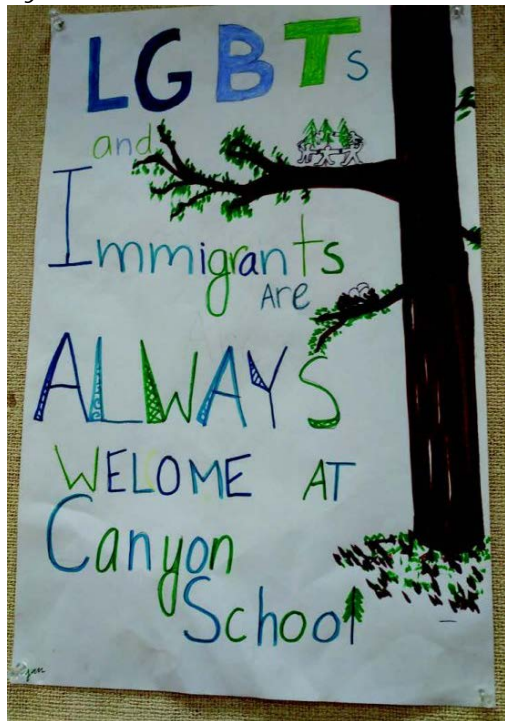 LGBTs
and
Immigrants
Are
ALWAYS
WELOME AT
Canyon
School